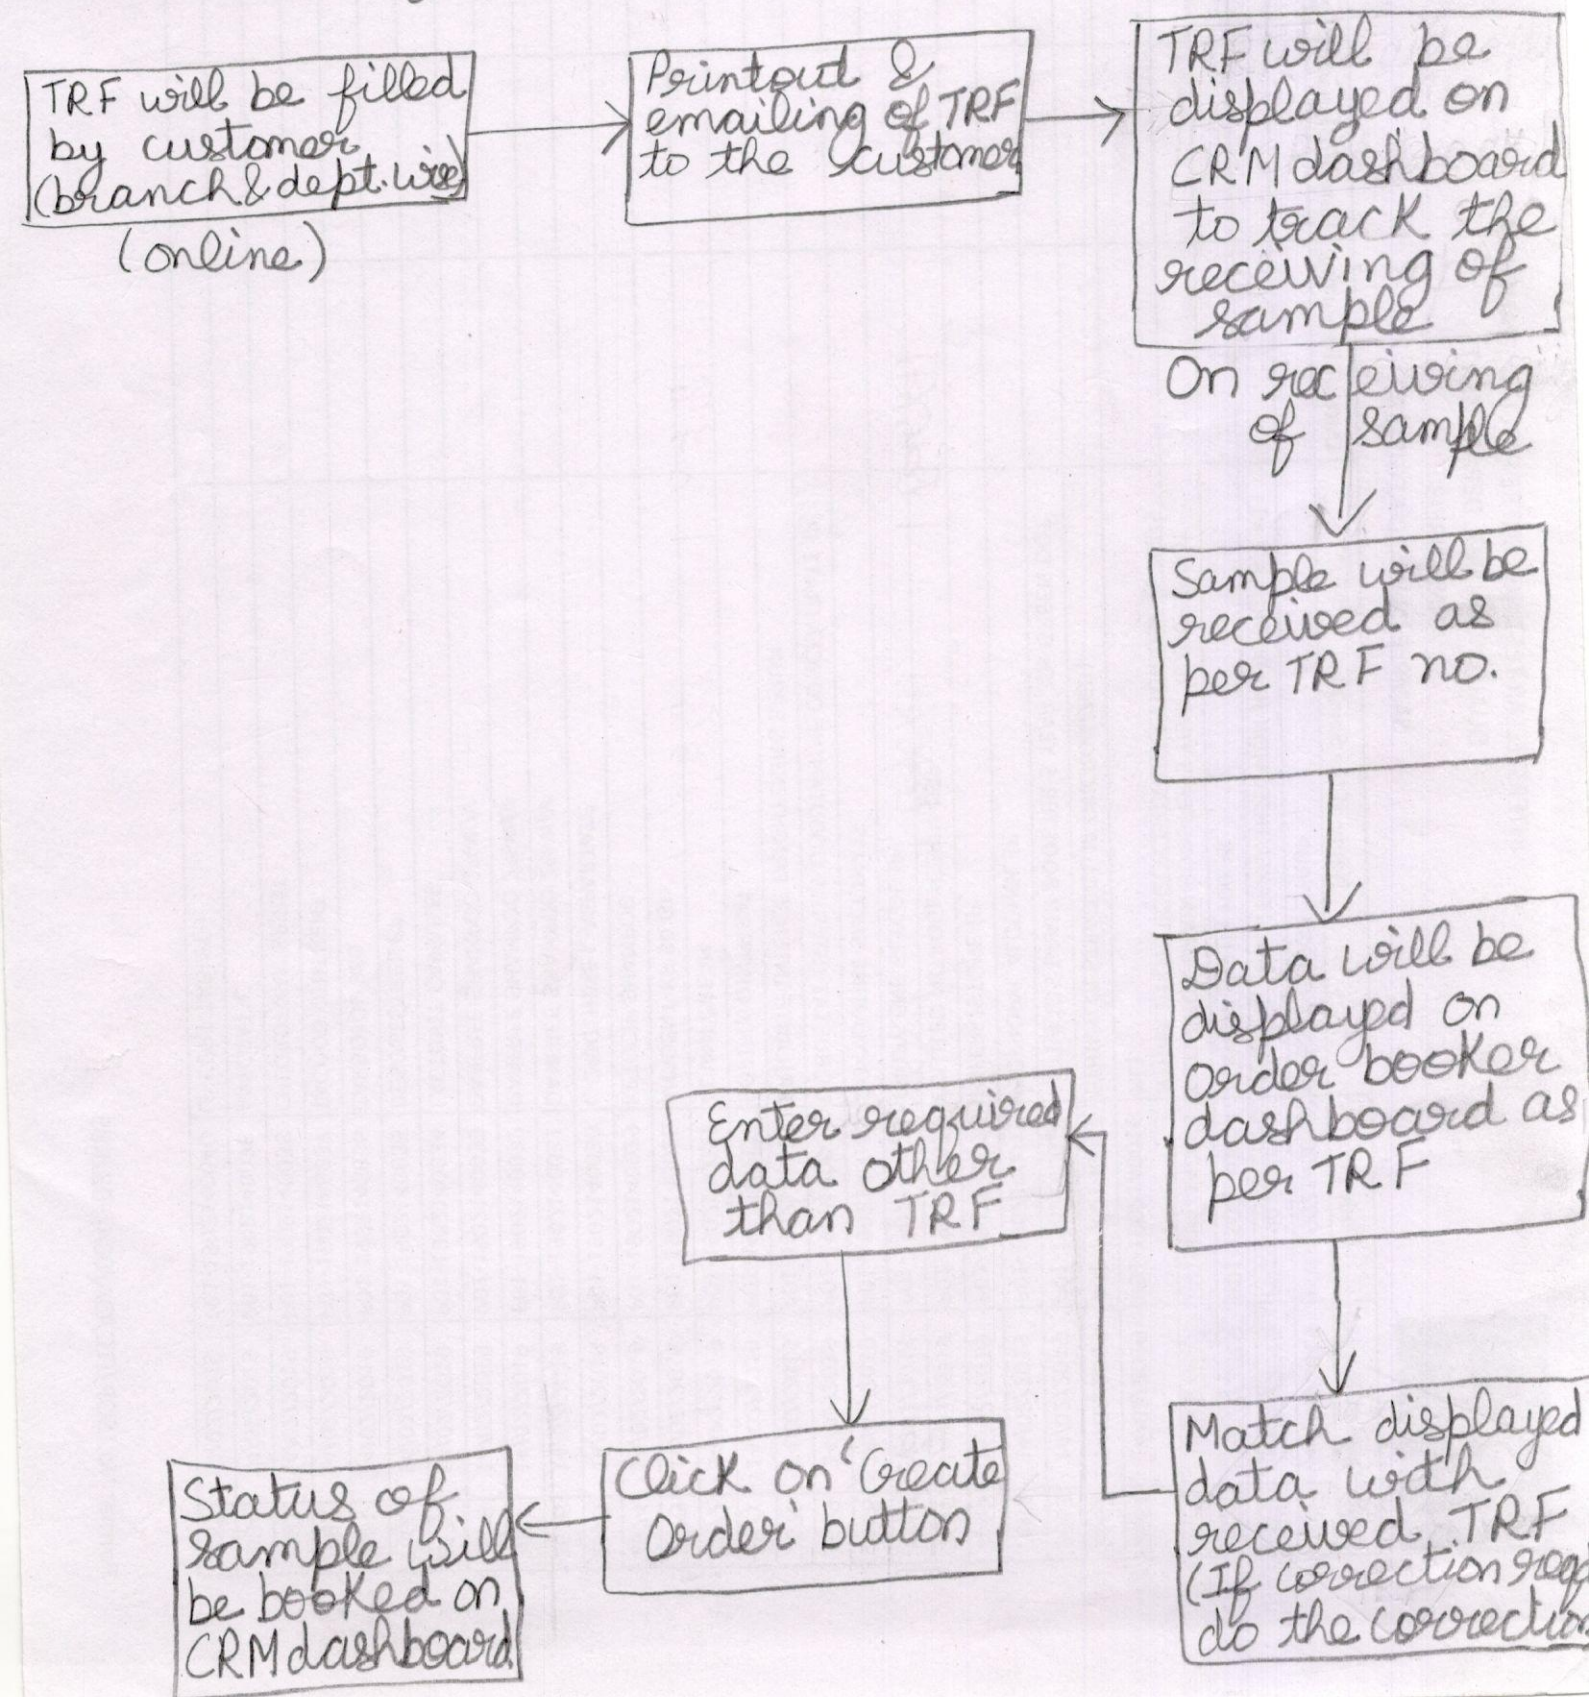 TRF will be filled
by customer
(branch & dept. wise)
(online)
Printout &
emailing of TRF
to the customer
TRF will be
displayed on
CRM dashboard
to track the
receiving of
sample
On receiving
of sample
Sample will be
received as
per TRF no.
Data will be
displayed on
Order booker
dashboard as
per TRF
Match displayed
data with
received TRF
(If correction reqd
do the correction
Enter required
data other
than TRF
Click on 'Create
Order' button
Status of
sample will
be booked on
CRM dashboard